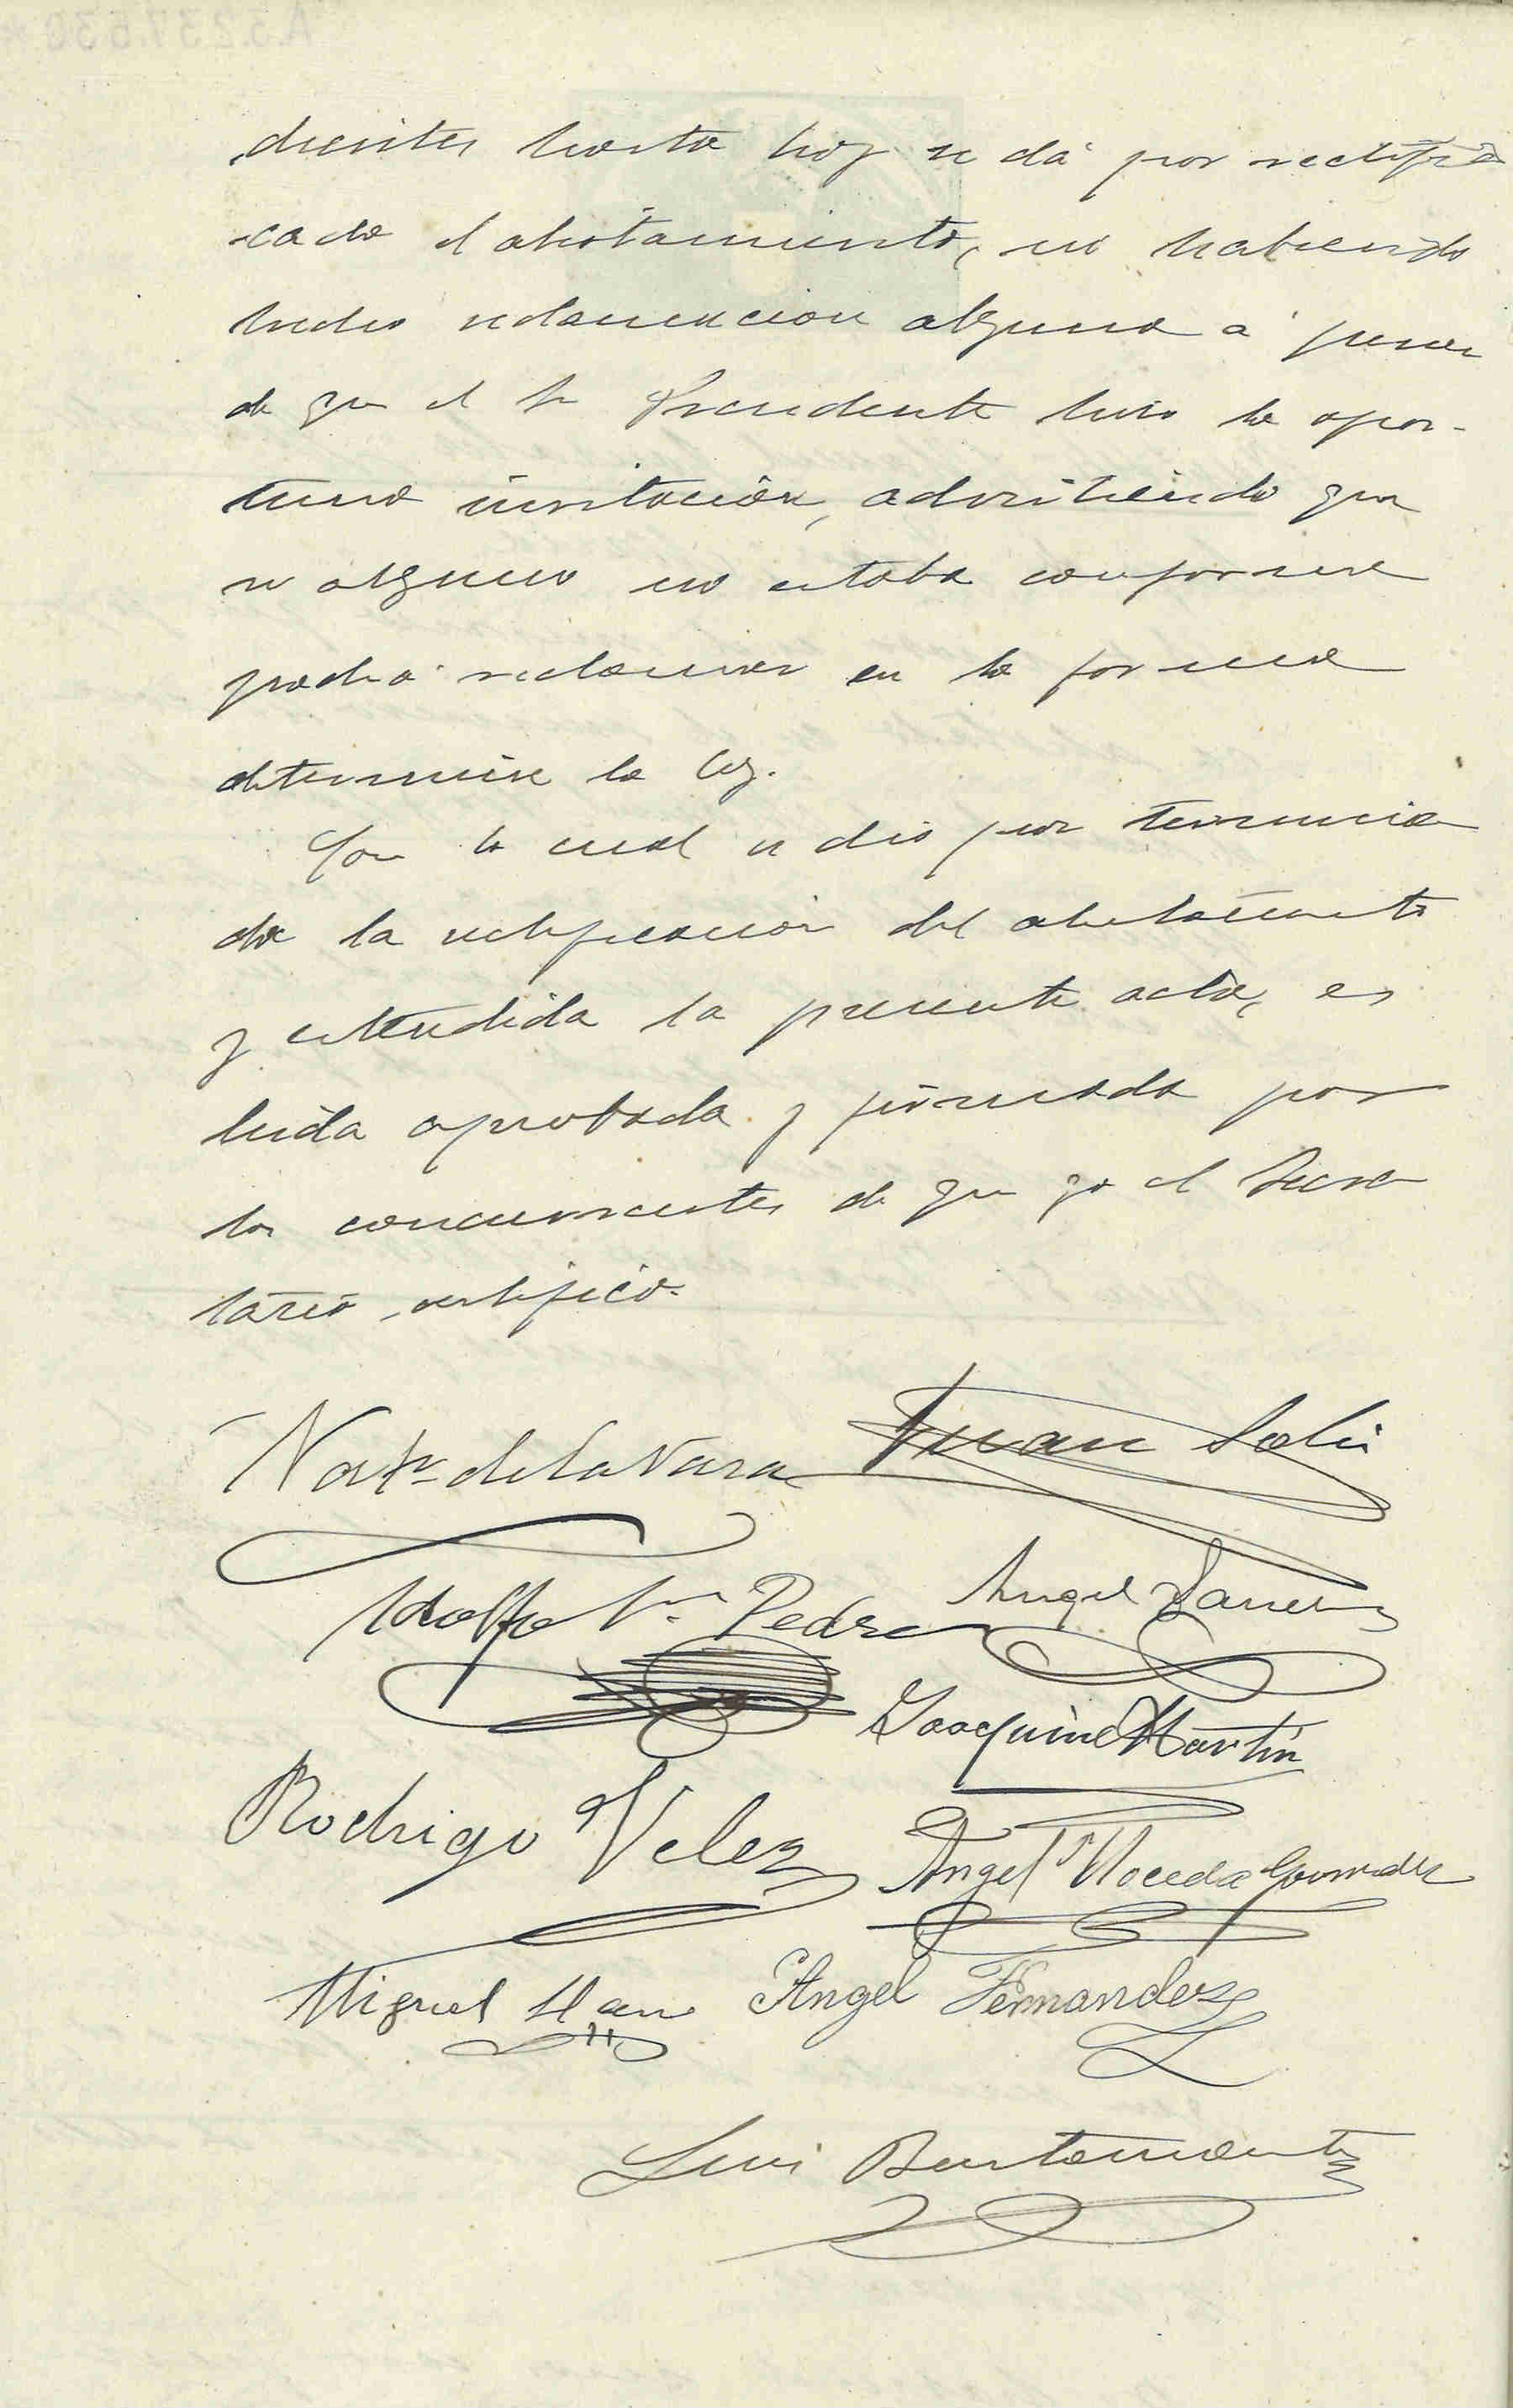 dientes hasta hoy se dá por rectifi
-cado el alistamiento, no habiendo
hecho reclamacion alguna a pesar
de que el Sr Presidente hizo la opor-
tuna invitación, advirtiendo que
si alguno no estaba conforme
podrá reclamar en la forma
determina la ley.
Con lo cual se dió por termina
da la rectificacion del alistamiento
y extendida la presente acta, es
leida aprobada y firmada por
los concurrentes de que yo el Secre
tario certifico.
de la Vara Juan Solis
Adolfo Pedro Angel
Joaquin Martín
Rodrigo Velez
Angel Noceda Gonzalez
Miguel Angel Fernandez
Luis Bustamante